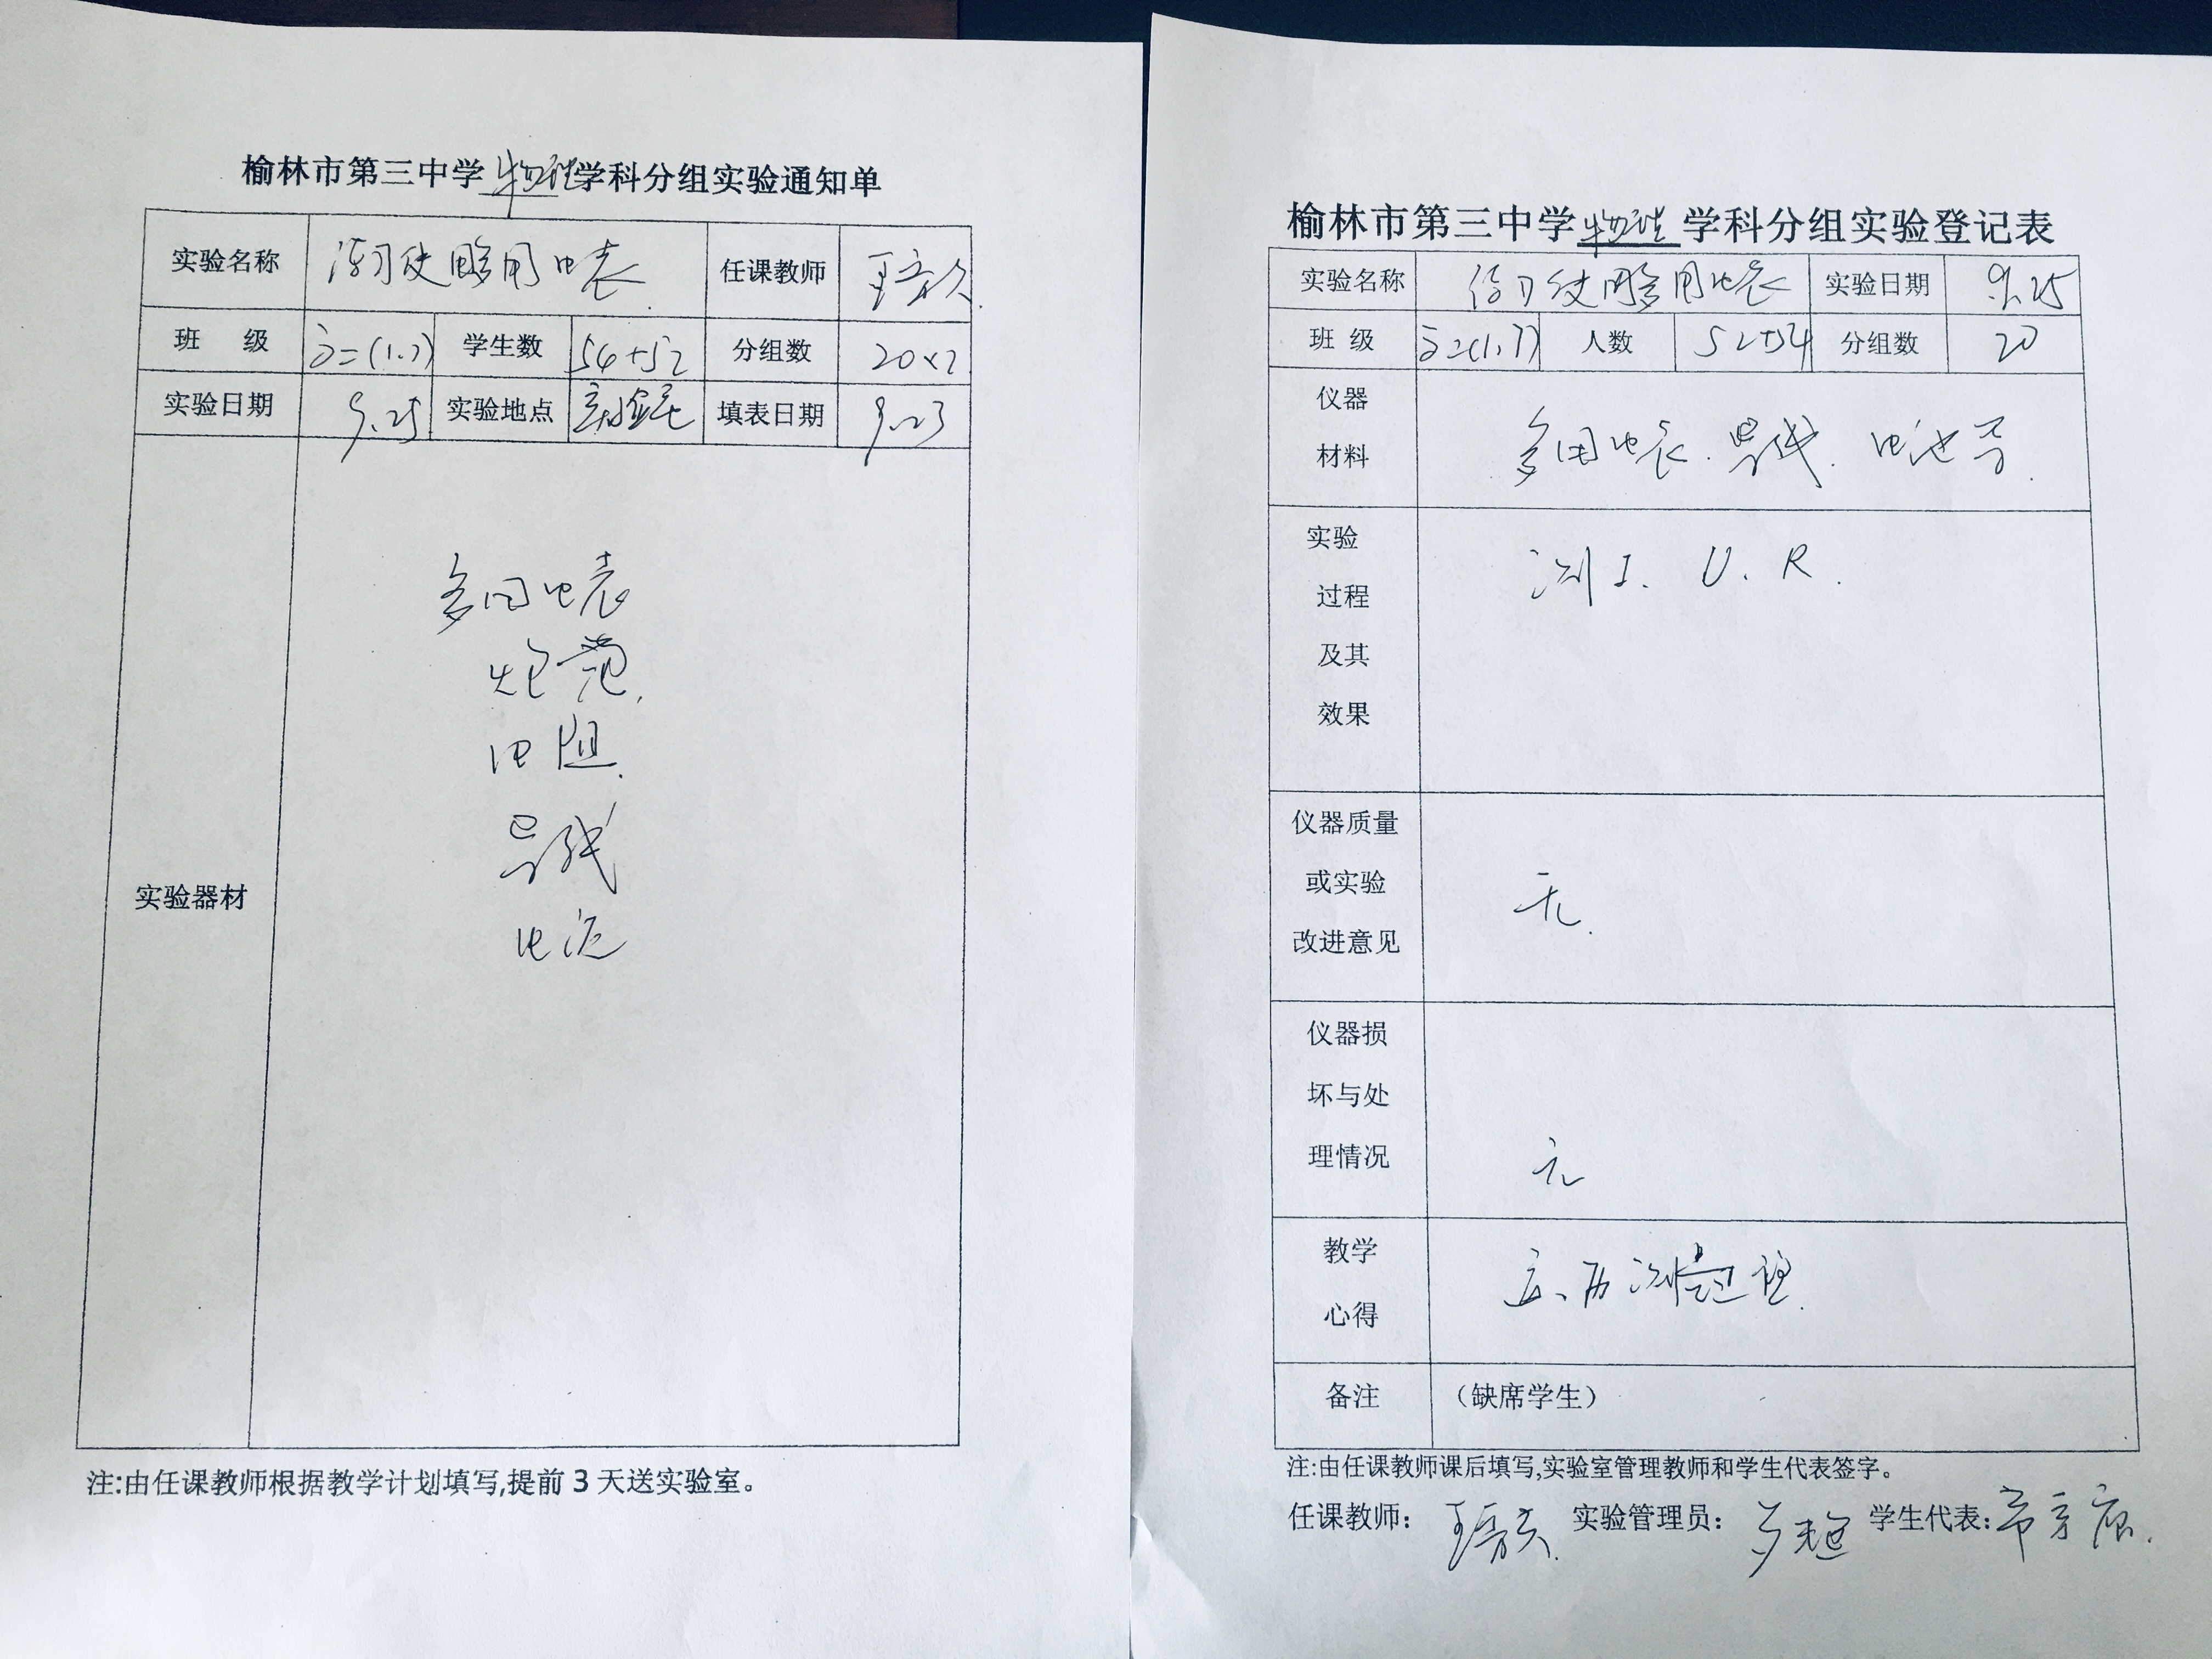 榆林市第三中学物理学科分组实验通知单
实验名称 练习使用多用电表 任课教师
班 级 高二(1.7) 学生数 54+52 分组数 20×2
实验日期 9.25 实验地点 实验室 填表日期 9.23
实验器材
多用电表
电阻.
导线
电池
注:由任课教师根据教学计划填写,提前 3 天送实验室。
榆林市第三中学物理学科分组实验登记表
实验名称 练习使用多用电表 实验日期 9.25
班 级 高二(1.7) 人数 52+54 分组数 20
仪器
材料
多用电表.导线.电池等.
实验
过程
及其
效果
测 I. U. R.
仪器质量
或实验
改进意见
无.
仪器损
坏与处
理情况
无
教学
心得
备注 （缺席学生）
注:由任课教师课后填写,实验室管理教师和学生代表签字。
任课教师: 实验管理员: 学生代表: